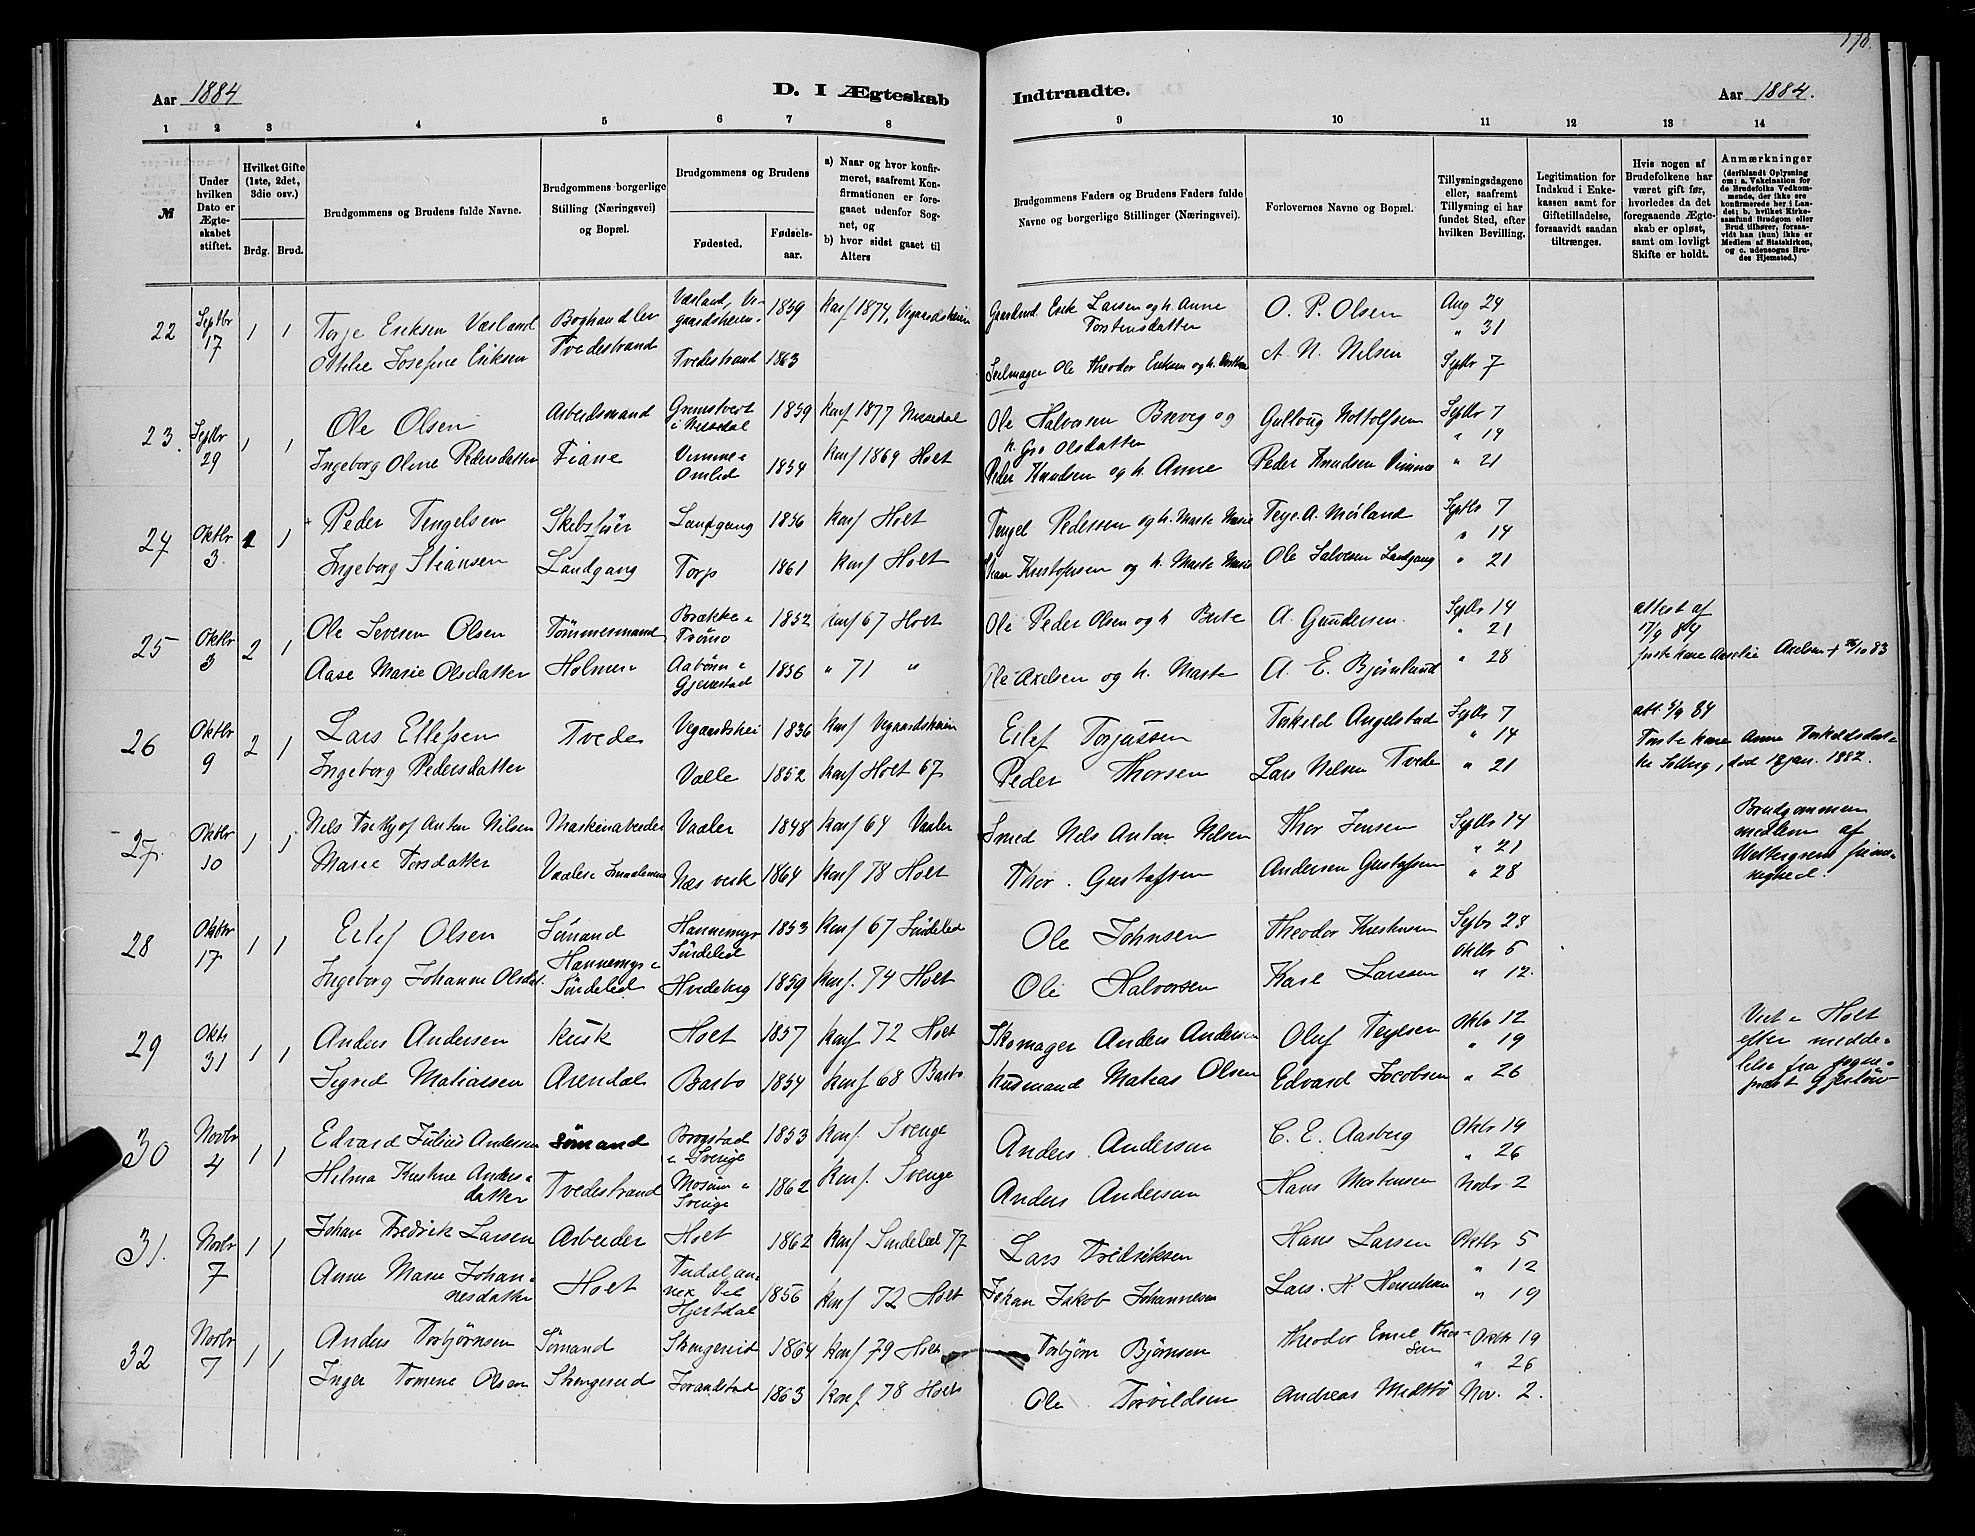 178.
Aar 1884
D. I Ægteskab Indtraadte.
Aar 1884.
1 2 3 4 5 6 7 8 9 10 11 12 13 14
№
Under hvilken Dato er Ægteskabet stiftet.
Hvilket Gifte (1ste, 2det, 3die osv.)
Brdg. Brud.
Brudgommens og Brudens fulde Navne.
Brudgommens borgerlige Stilling (Næringsvei) og Bopæl.
Brudgommens og Brudens
Fødested.
Fødselsaar.
a) Naar og hvor konfirmeret, saafremt Konfirmationen er foregaaet udenfor Sognet, og
b) hvor sidst gaaet til Alters
Brudgommens Faders og Brudens Faders fulde Navne og borgerlige Stillinger (Næringsvei).
Forlovernes Navne og Bopæl.
Tillysningsdagene eller, saafremt Tillysning ei har fundet Sted, efter hvilken Bevilling.
Legitimation for Indskud i Enkekassen samt for Giftetilladelse, forsaavidt saadan tiltrænges.
Hvis nogen af Brudefolkene har været gift før, hvorledes da det foregaaende Ægteskab er opløst, samt om lovligt Skifte er holdt.
Anmærkninger
(deriblandt Oplysning om: a. Vakcination for de Brudefolks Vedkommende, der ikke ere konfirmerede her i Landet; b. hvilket Kirkesamfund Brudgom eller Brud tilhører, forsaavidt han (hun) ikke er Medlem af Statskirken, og c. udensogns Brudes Hjemsted.)
22 Septbr 17 1 1 Torje Eriksen Væsland Boghandler Væsland, Vegaardsheien 1859 Konf 1874, Vegaardsheien Gaardmd Erik Larsen og h. Anne Torstensdatter O. P. Olsen Aug 24 " 31
Josefine Eriksen Tvedestrand Tvedestrand 1863 Seilmager Ole Theodor Eriksen og h. A. N. Nilsen Septbr 7
23. Septbr 29 1 1 Ole Olsen Arbeidsmand i Nissedal 1859 Konf 1877 Nissedal Ole Halvorsen og h. Gro Olsdatter Septbr 7 " 14
Ingeborg Oline Pedersdatter Fiane Omlid 1854 Konf 1869 Holt Peder Knudsen og h. Anne Peder Knudsen " 21
24 Oktbr 3. 1 Peder Tengelsen Skibsfører Landgang 1856 Konf Holt Tengel Pedersen og h. Marte Marie A. Septbr 7 " 14
Ingeborg Stiansen Landgang Torp 1861 Konf Holt Stian Kristofersen og h. Marte Marie Ole Salvesen Landgang " 21
25 Oktbr 3 2 1 Ole Severin Olsen Tømmermand Brække Tromø 1852 Konf 67 Holt Ole Peder Olsen og h Berte A. Gundersen. Septbr 14 " 21 attest af 17/9 84
Aase Marie Olsdatter Holmen Gjerrestad 1856 " 71 " Ole Axelsen og h. Marte A. E. Bjønlund " 28 første kone Axelsen + 83
26 Oktbr 9 2 1 Lars Ellefsen Tvede Vegaardshei 1836 Konf Vegaardsheien Eilef Torjussen Angelstad Septbr 7 " 14 att. 5/9 84
Ingeborg Pedersdatter Valle 1852 Konf Holt 67 Peder Thorsen Lars Nilsen Tvede " 21 Første kone Anne Solberg, død 18 jan. 1882.
27. Oktbr 10 1 1 Nils Anton Nilsen Maskinarbeider Vaaler 1848 Konf 64 Vaaler Smed Nils Anton Nilsen Thor Jensen Septbr 14 " 21 Brudgommen medlem af menighed.
Marie Torsdatter Vaaler Næs verk 1864 Konf 78 Holt Thor Gustafsen Andersen Gustafsen " 28
28 Oktbr 17 1 1 Eilef Olsen Sømand Hannemyr Søndeled 1853 Konf 67 Søndeled Ole Johnsen Theodor Kristensen Septbr 28 Oktbr 5
Ingeborg Johanne Olsdat. Hannemyr Søndeled Hvideberg 1859 Konf. 74 Holt Ole Halvorsen Karl Larsen " 12.
29 Oktb 31 1 1 Anders Andersen Kusk Holt 1857 Konf 72 Holt Skomager Anders Andersen Oluf Terjesen Oktbr 12 " 19 Viet i Holt efter meddelelse fra sognepræst Gjesløv
Sigrid Matiassen Arendal Barbo 1854 Konf 68 Barbo Husmand Matias Olsen Edvard Jocobsen " 26
30 Novbr 4 1 1 Edvard Julius Andersen Sømand i Sverige 1853 Konf. Sverige Anders Andersen C. E. Aasberg Oktbr 19 " 26
Hilma Kristine Andersdatter Tvedestrand i Sverige 1862 Konf. Sverige Anders Andersen Hans Mortensen Novbr 2
31. Novbr 7 1 1 Johan Fredrik Larsen Arbeider Holt 1862 Konf Søndeled 77 Lars Fredriksen Hans Larsen Oktbr 5 " 12
Anne Marie Johannesdatter Holt Tudal annex til Hjertdal 1856 Konf 72 Holt Johan Jakob Johannesen Lars. H. " 19
32 Novbr 7 1 1 Anders Torbjørnsen Sømand Stengereid 1864 Konf 79 Holt Torbjørn Bjørnsen Theodor Emil Thorsen Oktbr 19 " 26
Inger Tomine Olsen Stengereid 1863 Konf. 78 Holt Ole Torvildsen Andreas Nov. 2.